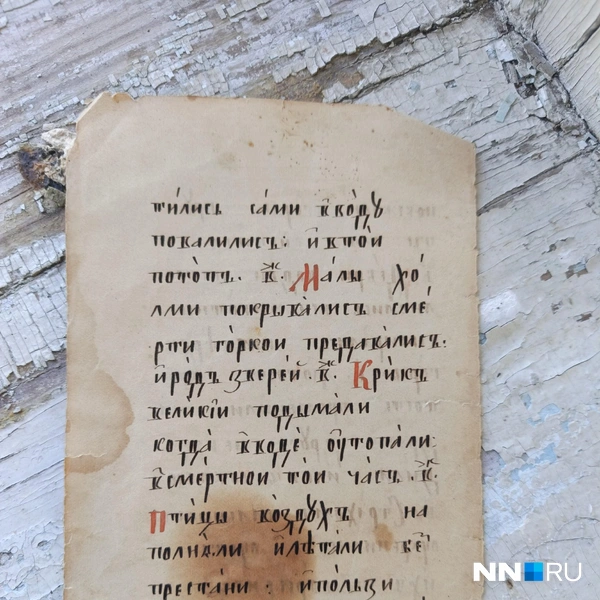 ти́лись са́ми в̾во́дꙋ
повалились: и҆ вто́и
пото́пъ. в҃ж. Ма́лы хо́
лми покрыва́лись сме́
рти го́ркои предава́лись.
и҆ро́дъ звере́й. в҃ж. Кри́къ
вели́кїи подыма́ли
когда̀ в̾воде̾ оу҆топа́ли:
в̾сме́ртнои то́и ча́съ. в҃ж.
Пти́цы во́здꙋхъ на
полня́ли и҆лѣта́ли бе
преста́ни: и҆по́льзи
NN RU